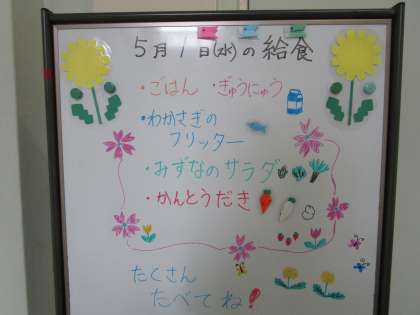 5月1日(水)の給食
・ごはん ・ぎゅうにゅう
・わかさぎの
フリッター
・みずなのサラダ
・かんとうだき
たくさん
たべてね!